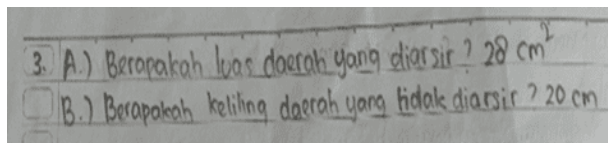 3. A.) Berapakah luas daerah yang diarsir? 28 cm²
B.) Berapakah keliling daerah yang tidak diarsir? 20 cm